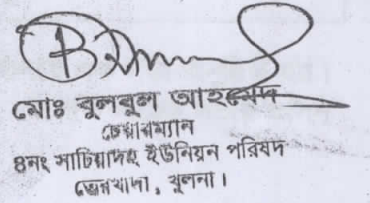 মোঃ বুলবুল আহমেদ
চেয়ারম্যান
৪নং সাচিয়াদহ ইউনিয়ন পরিষদ
তেরখাদা, খুলনা।